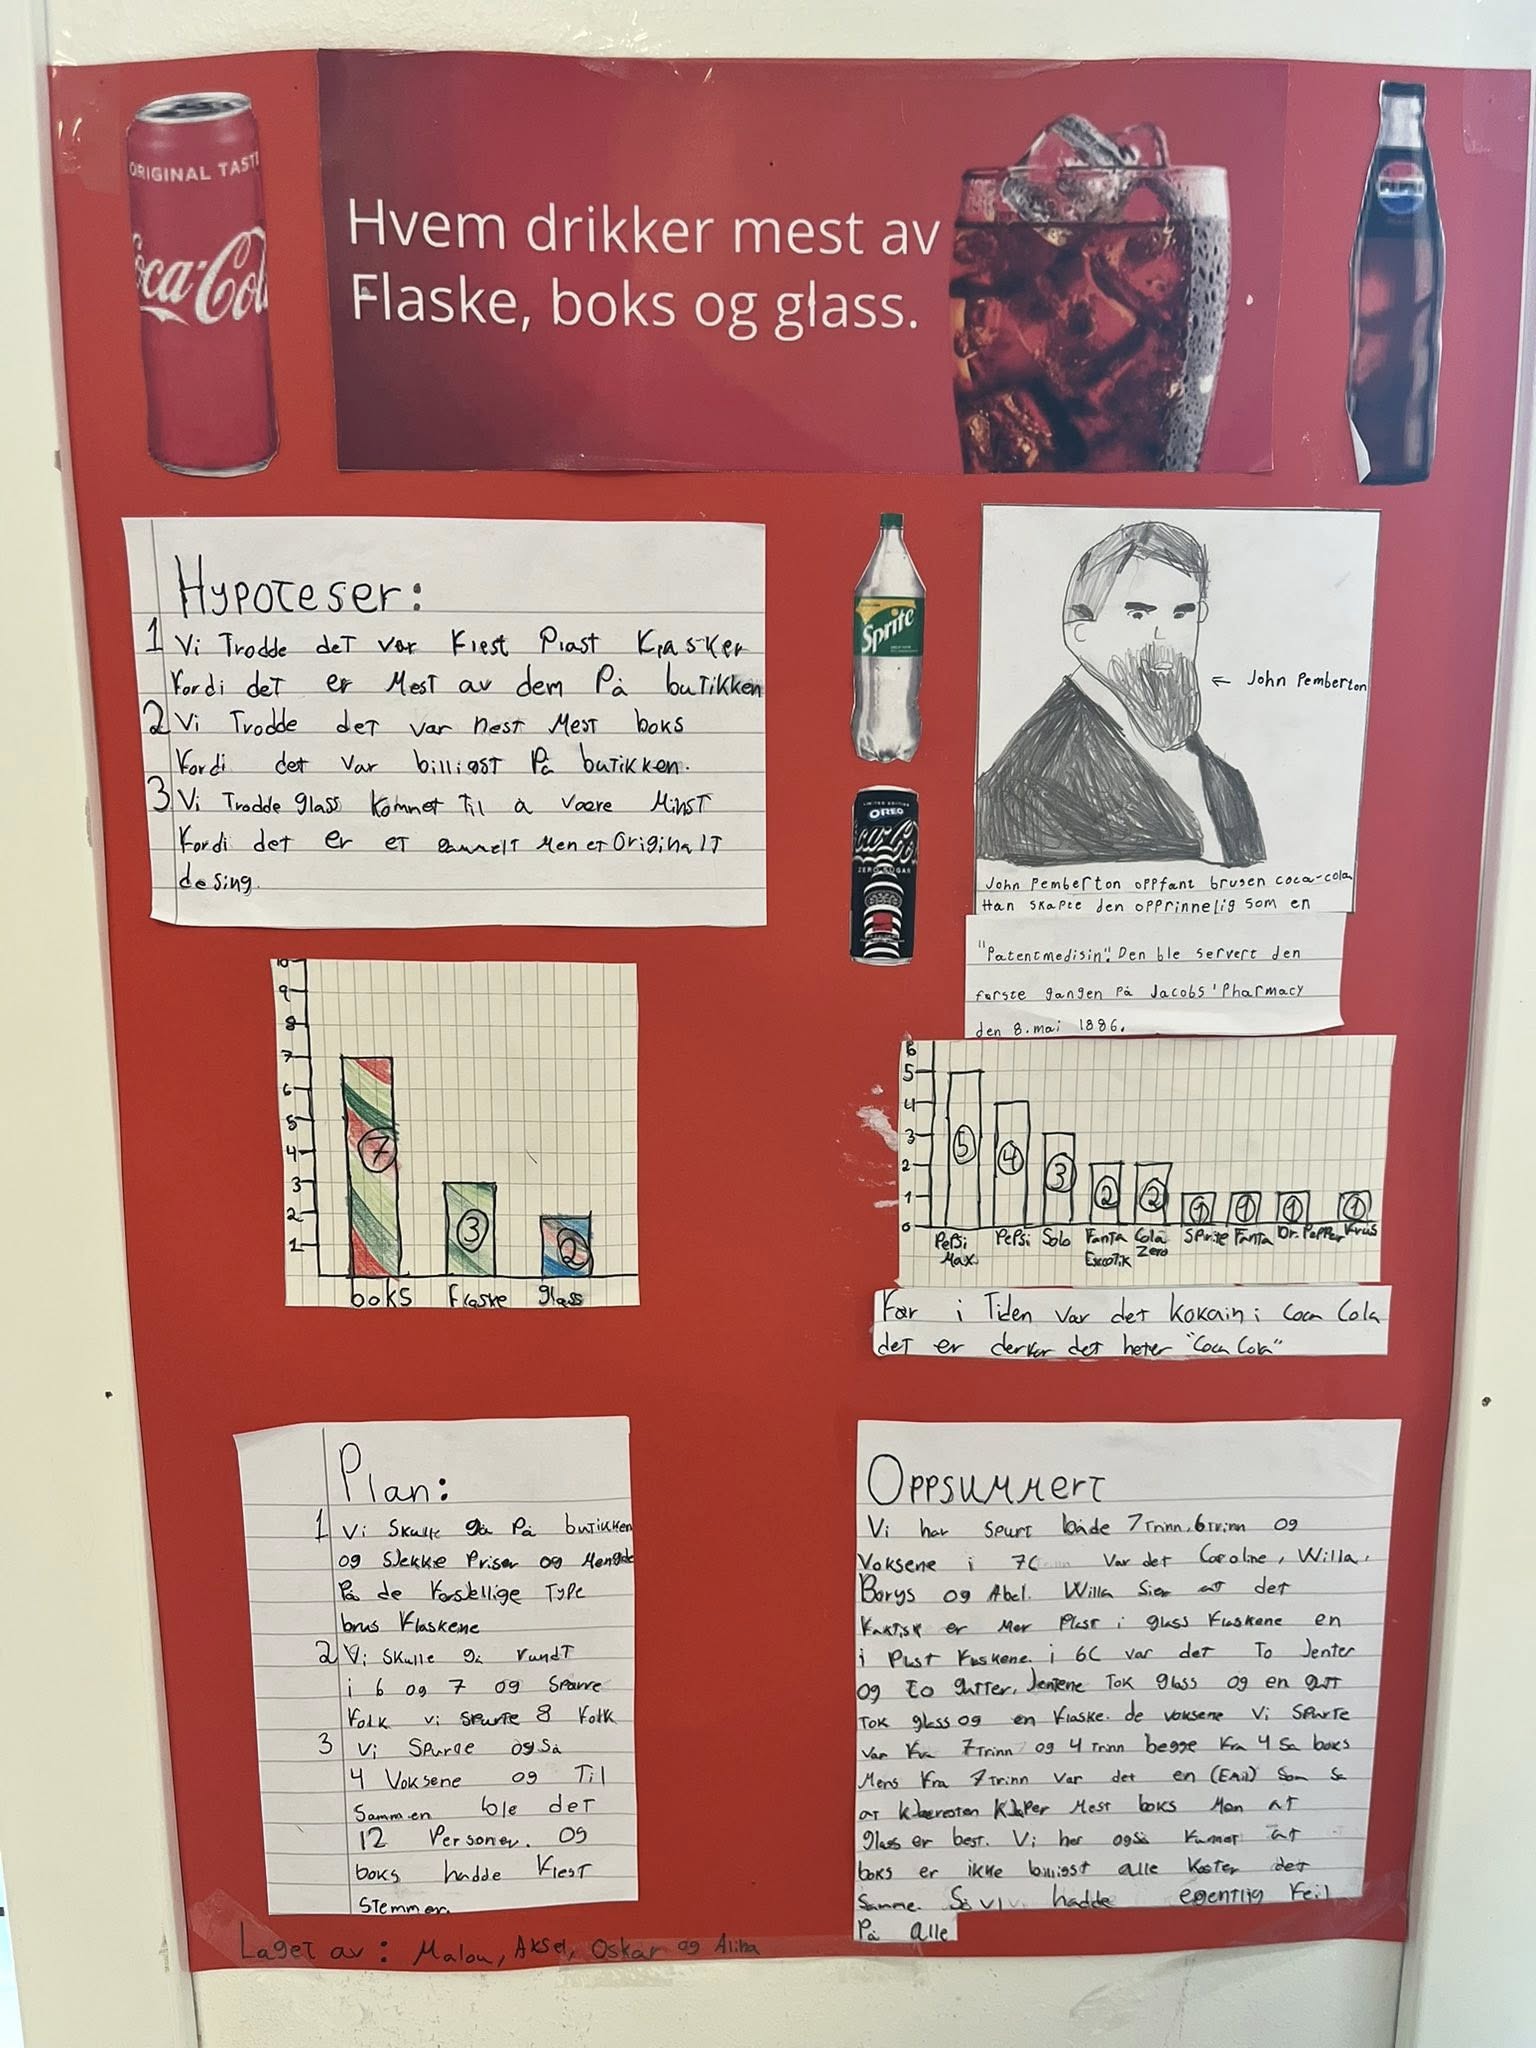 ORIGINAL TASTE
Coca-Cola
Hvem drikker mest av
Flaske, boks og glass.
Hypoteser:
1 Vi Trodde det var flest Plast flasker
fordi det er Mest av dem På butikken
2 Vi Trodde det var nest Mest boks
fordi det var billigst På butikken.
3 Vi Trodde glass kommet til å være Minst
fordi det er et gammelt Men et Originalt
desing.
Sprite
LIMITED EDITION
OREO
Coca-Co
ZERO SUGAR
← John Pemberton
John Pemberton oppfant brusen coca-cola
Han skapte den opprinnelig som en
"Patentmedisin". Den ble servert den
første gangen på Jacobs' Pharmacy
den 8. mai 1886.
10
9
8
7
6
5
4
3
2
1
7
3
2
boks flaske glass
6
5
4
3
2
1
0
5 4 3 2 2 1 1 1 1
Pepsi Pepsi Solo Fanta Cola Sprite Fanta Dr. Pepper Krus
Max Exotik Zero
Før i Tiden var det kokain i Coca Cola
det er derfor det heter "Coca Cola"
Plan:
1 Vi Skulle gå På butikken
og sjekke Priser og Mengde
På de forsjellige Type
brus flaskene
2 Vi Skulle gå rundt
i 6 og 7 og Spørre
folk vi spurte 8 folk
3 Vi Spurde også
4 Voksene og Til
Sammen ble det
12 Personer. og
boks hadde flest
Stemmer.
Oppsummert
Vi har spurt både 7Trinn, 6Trinn og
Voksene i 7C var det Caroline, Willa,
Borys og Abel. Willa Sier at det
faktisk er Mer Plast i glass flaskene en
i Plast flaskene. i 6C var det To Jenter
og To gutter, Jentene Tok glass og en gutt
Tok glass og en flaske. de voksene Vi Spurte
var fra 7Trinn og 4Trinn begge fra 4 Sa boks
Mens fra 7Trinn var det en (Emil) Som Sa
at kjøper Mest boks Men at
glass er best. Vi har også funnet at
boks er ikke billigst alle koster det
Samme. Så vi hadde egentlig feil
På alle
Laget av: Malou, Aksel, Oskar og Alina